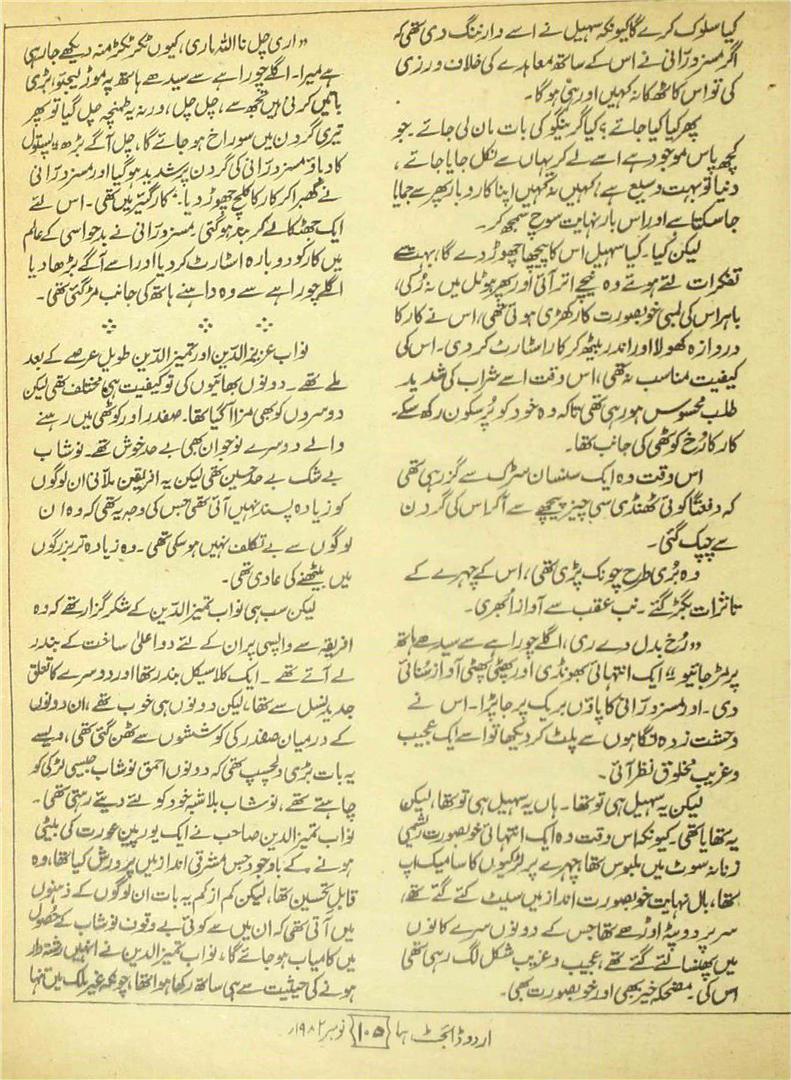 کیا سلوک کرے گا کیونکہ سہیل نے اسے وارننگ دی تھی کہ
اگر مسز درّانی نے اس کے ساتھ معاہدے کی خلاف ورزی
کی تو اس کا ٹھکانہ کہیں اور ہی ہوگا۔
پھر کیا کیا جائے؟ کیا گرینگو کی بات مان لی جائے۔ جو
کچھ پاس موجود ہے اسے لے کر یہاں سے نکل جایا جائے،
دنیا تو بہت وسیع ہے، کہیں نہ کہیں اپنا کاروبار پھر سے جمایا
جا سکتا ہے اور اس بار نہایت سوچ سمجھ کر۔
لیکن کیا۔ کیا سہیل اس کا پیچھا چھوڑ دے گا، بہت سے
تفکرات لئے ہوئے وہ نیچے اتر آئی اور پھر ہوٹل میں نہ رُکی،
باہر اس کی لمبی خوبصورت کار کھڑی ہوئی تھی، اس نے کار کا
دروازہ کھولا اور اندر بیٹھ کر کار اسٹارٹ کر دی۔ اس کی
کیفیت مناسب نہ تھی، اس وقت اسے شراب کی شدید
طلب محسوس ہو رہی تھی تاکہ وہ خود کو پُرسکون رکھ سکے۔
کار کا رُخ کوٹھی کی جانب تھا۔
اس وقت وہ ایک سنسان سڑک سے گزر رہی تھی
کہ دفعتاً کوئی ٹھنڈی سی چیز پیچھے سے آ کر اس کی گردن
سے چپک گئی۔
وہ بُری طرح چونک پڑی تھی، اس کے چہرے کے
تاثرات بگڑ گئے۔ تب عقب سے آواز ابھری۔
”رُخ بدل دے ری، اگلے چوراہے سے سیدھے ہاتھ
پر مڑ جائیو“ ایک انتہائی بھونڈی اور پھٹی پھٹی آواز سُنائی
دی۔ اور مسز درّانی کا پاؤں بریک پر جا پڑا۔ اس نے
وحشت زدہ نگاہوں سے پلٹ کر دیکھا تو اسے ایک عجیب
و غریب مخلوق نظر آئی۔
لیکن یہ سہیل ہی تو تھا۔ ہاں یہ سہیل ہی تو تھا، لیکن
یہ تھا یا تھی۔ کیونکہ اس وقت وہ ایک انتہائی خوبصورت ریشمی
زنانہ سوٹ میں ملبوس تھا، چہرے پر لڑکیوں کا سا میک اپ
تھا، بال نہایت خوبصورت انداز میں سیٹ کئے گئے تھے،
سر پر دوپٹہ اوڑھے تھا جس کے دونوں سرے کانوں
میں پھنسا لئے گئے تھے، عجیب و غریب شکل لگ رہی تھی
اس کی۔ مضحکہ خیز بھی اور خوبصورت بھی۔
”اری چل نا اللہ ماری، کیوں ٹکر ٹکر منہ دیکھے جا رہی
ہے میرا۔ اگلے چوراہے سے سیدھے ہاتھ پہ موڑ لیجیو، بڑی
باتیں کرنی ہیں تجھ سے، چل چل، ورنہ یہ طمنچہ چل گیا تو پھر
تیری گردن میں سوراخ ہو جائے گا، چل آگے بڑھ“ پستول
کا دباؤ مسز درّانی کی گردن پر شدید ہو گیا اور مسز درّانی
نے گھبرا کر کار کا کلچ چھوڑ دیا۔ کار گیئر میں تھی۔ اس لئے
ایک جھٹکا لے کر بند ہو گئی۔ مسز درّانی نے بدحواسی کے عالم
میں کار کو دوبارہ اسٹارٹ کر دیا اور اسے آگے بڑھا دیا
اگلے چوراہے سے وہ داہنے ہاتھ کی جانب مڑ گئی تھی۔
نواب عزیز الدّین اور تمیز الدّین طویل عرصے کے بعد
ملے تھے۔ دونوں بھائیوں کی تو کیفیت ہی کا مختلف تھی لیکن
دوسروں کو بھی مزا آ گیا تھا۔ صفدر اور کوٹھی میں رہنے
والے دوسرے نوجوان بھی بے حد خوش تھے۔ نوشاب
بے شک بے حد حسین تھی لیکن یہ افریقن ملّانی ان لوگوں
کو زیادہ پسند نہیں آئی تھی جس کی وجہ یہ تھی کہ وہ ان
لوگوں سے بے تکلف نہیں ہو سکی تھی۔ وہ زیادہ تر بزرگوں
میں بیٹھنے کی عادی تھی۔
لیکن سب ہی نواب تمیز الدّین کے شکر گزار تھے کہ وہ
افریقہ سے واپسی پر ان کے لئے دو اعلیٰ ساخت کے بندر
لے آئے تھے۔ ایک کلاسیکل بندر تھا اور دوسرے کا تعلق
جدید نسل سے تھا، لیکن دونوں ہی خوب تھے، ان دونوں
کے درمیان صفدر کی کوششوں سے ٹھن گئی تھی، ویسے
یہ بات بڑی دلچسپ تھی کہ دونوں احمق نوشاب جیسی لڑکی کو
چاہتے تھے، نوشاب بلاشبہ خود کو لئے دیئے رہتی تھی۔
نواب تمیز الدین صاحب نے ایک یورپین عورت کی بیٹی
ہونے کے باوجود جس مشرقی انداز میں پرورش کیا تھا، وہ
قابلِ تحسین تھا، لیکن کم از کم یہ بات ان لوگوں کے ذہنوں
میں آتی تھی کہ ان میں سے کوئی بے وقوف نوشاب کے حصول
میں کامیاب ہو جائے گا، نواب تمیز الدین نے انہیں رشتہ دار
ہونے کی حیثیت سے ہی ساتھ رکھا ہوا تھا، چونکہ غیر ملک میں تنہا
اردو ڈائجسٹ ہما {۱۰۵} نومبر ۱۹۸۲ء